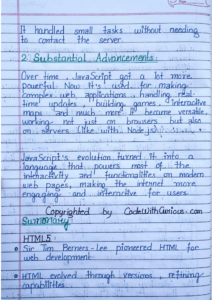 It handled small tasks without needing
to contact the server.
2. Substantial Advancements:
Over time, JavaScript got a lot more
powerful. Now it's used for making
complex web applications, handling real-
time updates, building games, interactive
maps and much more. It became versatile,
working not just on browsers but also
on servers (like with Node.js).
JavaScript's evolution turned it into a
language that powers most of the
interactivity and functionalities on modern
web pages, making the internet more
engaging and interactive for users.
Copyrighted by CodeWithCurious.com
Summary
HTML5:
• Sir Tim Berners-Lee pioneered HTML for
web development.
• HTML evolved through versions, refining
capabilities.